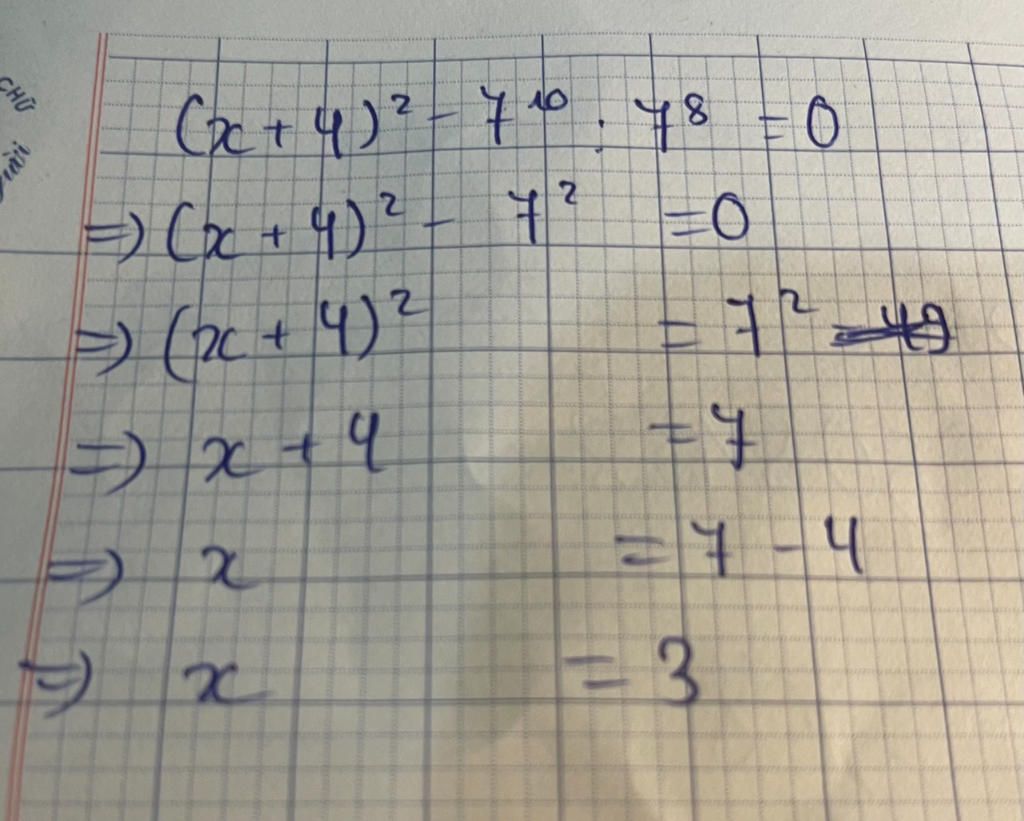 CHỮ
(x + 4)² - 7¹⁰ : 7⁸ = 0
=> (x + 4)² - 7² = 0
=> (x + 4)² = 7² = 49
=> x + 4 = 7
=> x = 7 - 4
=> x = 3